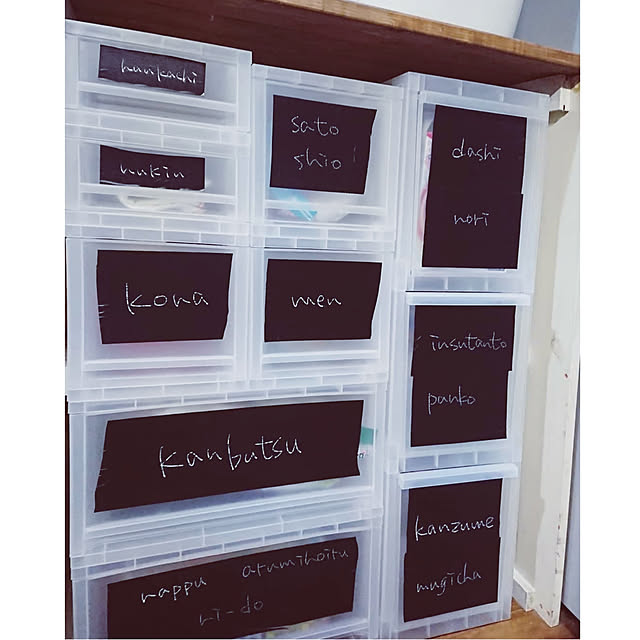 hankachi
nukin
sato
shio
dashi
nori
kona
men
insutanto
panko
kanbutsu
kanzume
mugicha
rappu
arumihoiru
ri-do